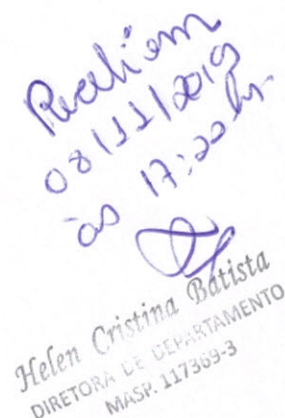 Recebi em
08/11/2019
às 17:20 hs.
Helen Cristina Batista
DIRETORA DE DEPARTAMENTO
MASP. 117369-3